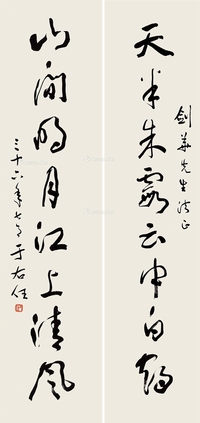 剑华先生法正
天半朱霞云中白鹤
山间明月江上清风
三十六年七月于右任